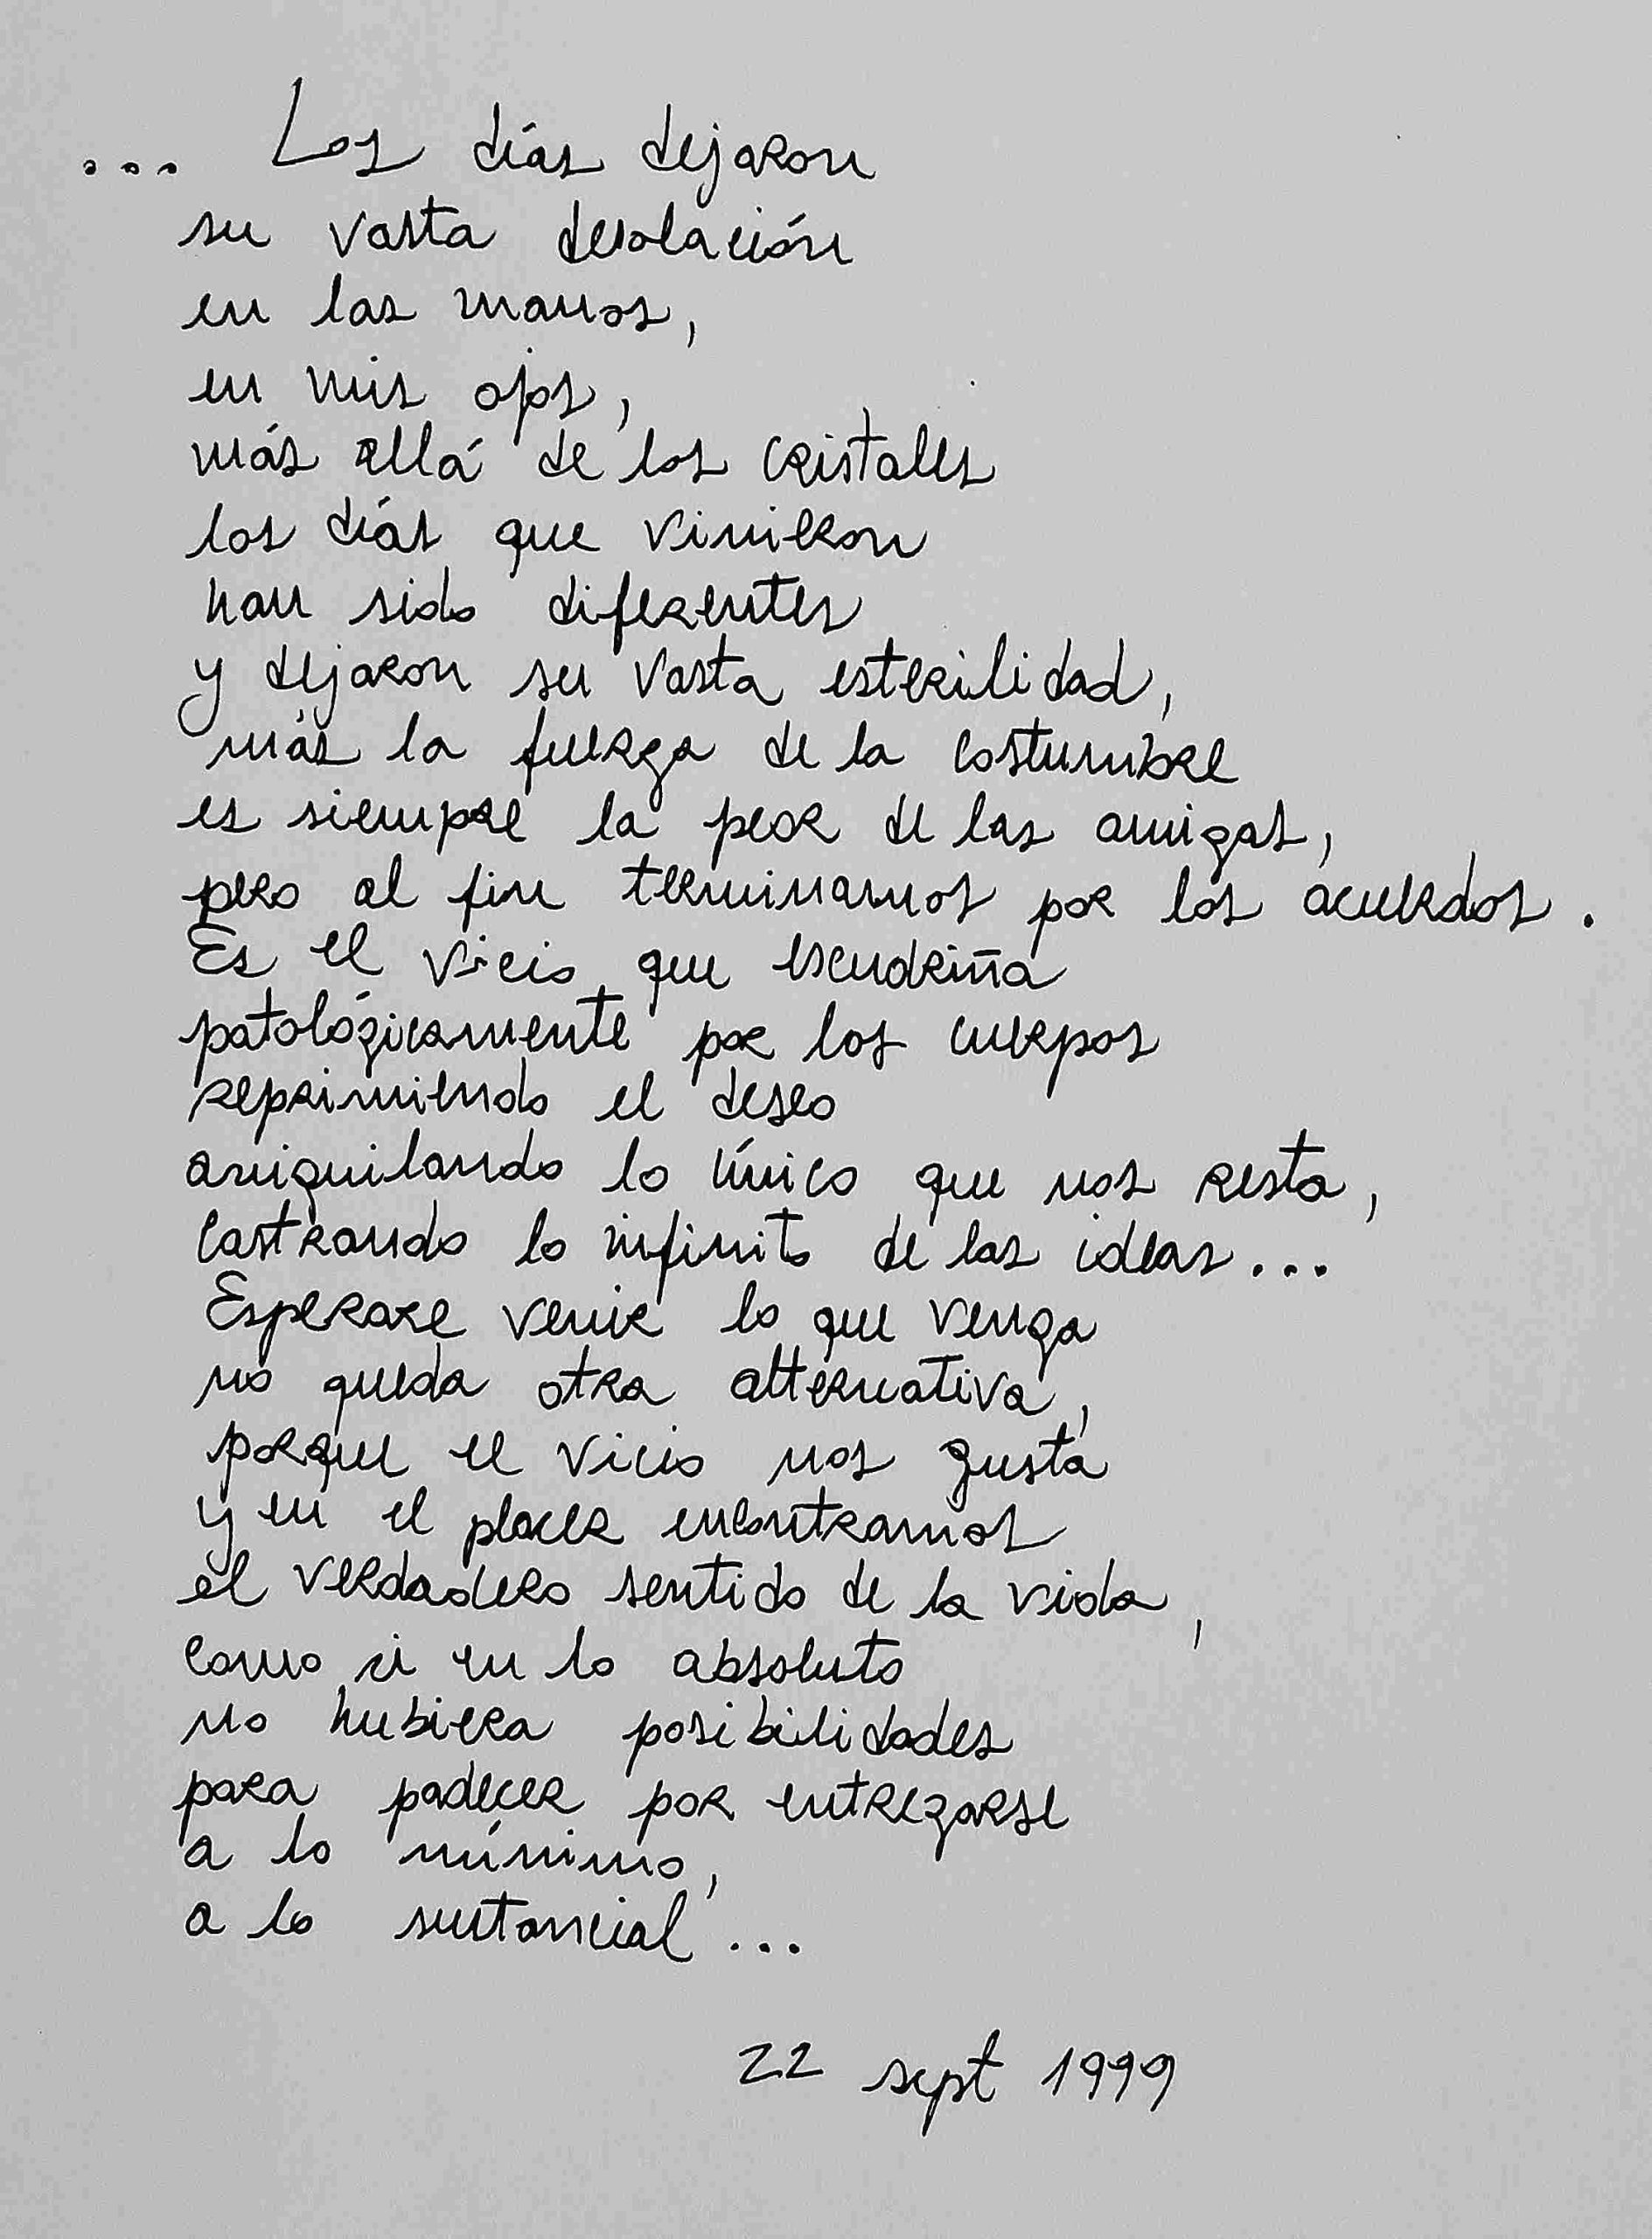 ... Los días dejaron
su vasta desolación
en las manos,
en mis ojos,
más allá de los cristales
los días que vinieron
han sido diferentes
y dejaron su vasta esterilidad,
más la fuerza de la costumbre
es siempre la peor de las amigas,
pero al fin terminamos por los acuerdos.
Es el vicio que escudriña
patológicamente por los cuerpos
reprimiendo el deseo
aniquilando lo único que nos resta,
castrando lo infinito de las ideas...
Esperare venir lo que venga
no queda otra alternativa,
porque el vicio nos gusta
y en el placer encontramos
el verdadero sentido de la vida,
como si en lo absoluto
no hubiera posibilidades
para padecer por entregarse
a lo mínimo,
a lo sustancial...
22 sept 1999